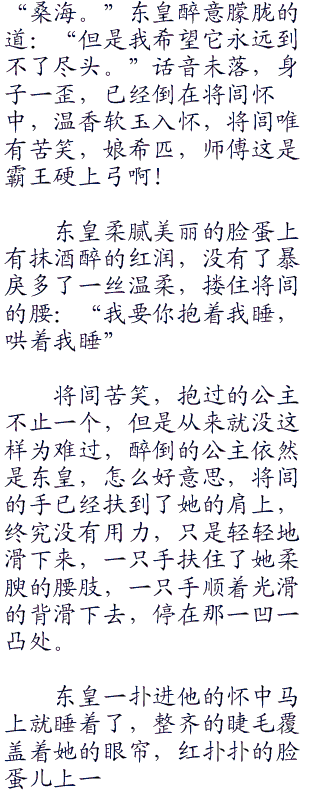 “桑海。”东皇醉意朦胧的
道：“但是我希望它永远到
不了尽头。”话音未落，身
子一歪，已经倒在将闾怀
中，温香软玉入怀，将闾唯
有苦笑，娘希匹，师傅这是
霸王硬上弓啊！
东皇柔腻美丽的脸蛋上
有抹酒醉的红润，没有了暴
戾多了一丝温柔，搂住将闾
的腰：“我要你抱着我睡，
哄着我睡”
将闾苦笑，抱过的公主
不止一个，但是从来就没这
样为难过，醉倒的公主依然
是东皇，怎么好意思，将闾
的手已经扶到了她的肩上，
终究没有用力，只是轻轻地
滑下来，一只手扶住了她柔
腴的腰肢，一只手顺着光滑
的背滑下去，停在那一凹一
凸处。
东皇一扑进他的怀中马
上就睡着了，整齐的睫毛覆
盖着她的眼帘，红扑扑的脸
蛋儿上一